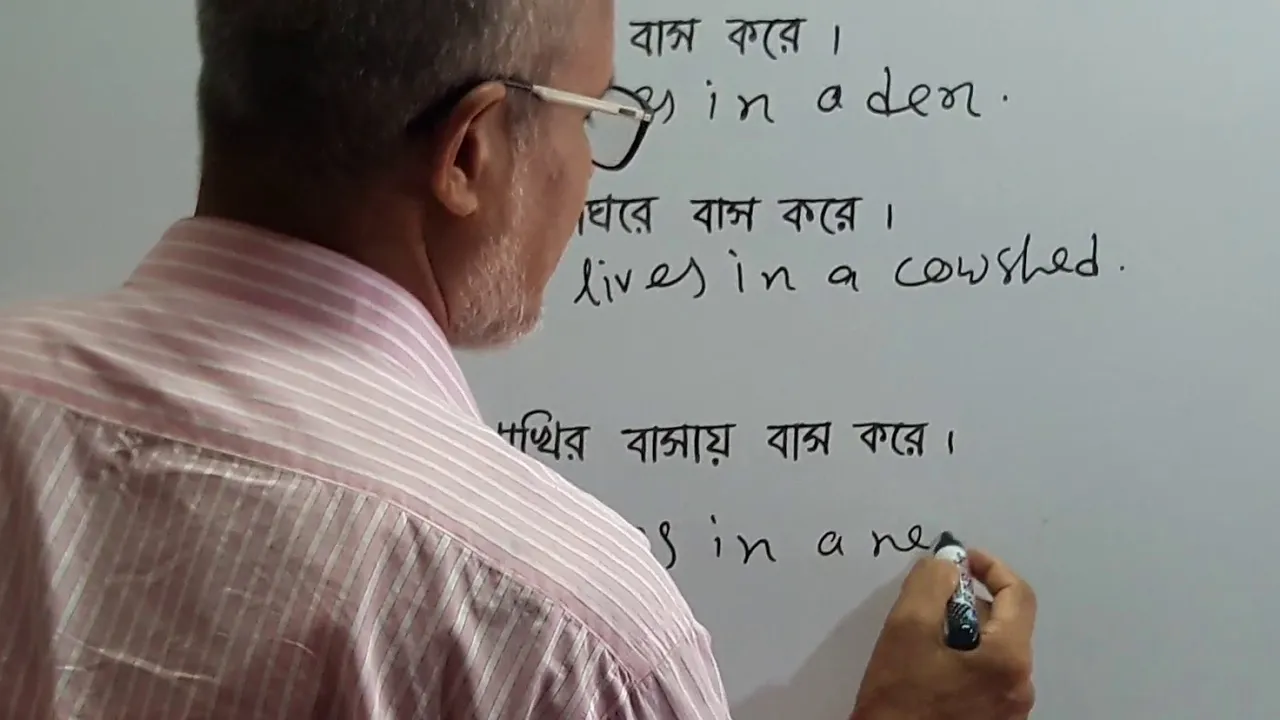 বাস করে ।
in a den.
ঘরে বাস করে ।
lives in a cowshed.
বাসায় বাস করে ।
in a ne